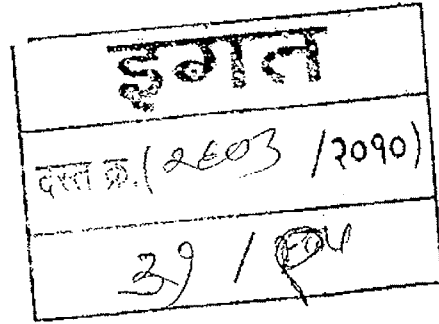 इगत
दस्त क्र.( २६०३ /२०१०)
३१ /